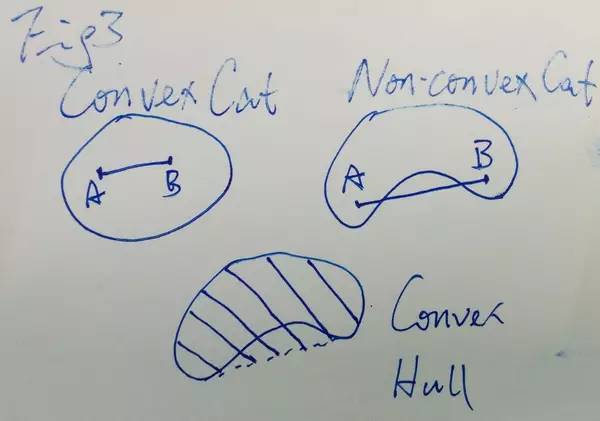 Fig3
Convex Cat
Non-convex Cat
A B
A B
Convex
Hull